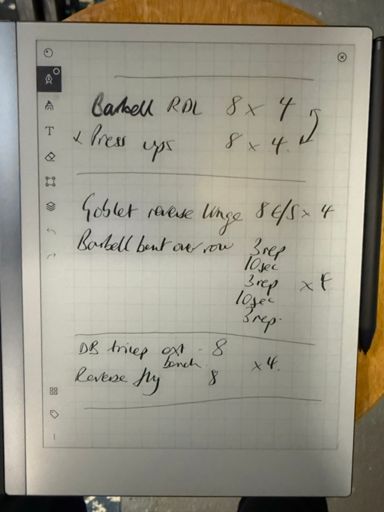 Barbell RDL 8 x 4
x Press ups 8 x 4.
Goblet reverse lunge 8 E/S x 4
Barbell bent over row 3rep
10sec
3rep x 4
10sec
3rep.
DB tricep ext - 8
bench x 4.
Reverse fly 8